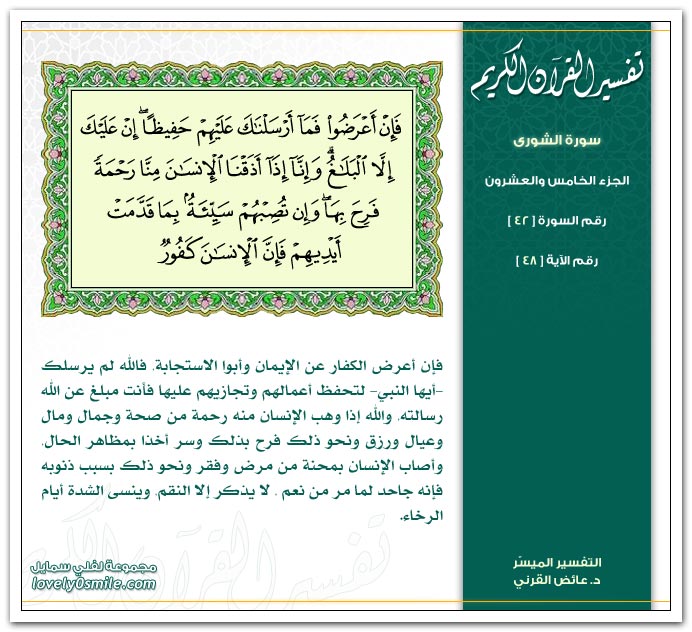 تفسير القرآن الكريم
سورة الشورى
الجزء الخامس والعشرون
رقم السورة [ ٤٢ ]
رقم الآية [ ٤٨ ]
فَإِنْ أَعْرَضُوا۟ فَمَآ أَرْسَلْنَٰكَ عَلَيْهِمْ حَفِيظًا ۖ إِنْ عَلَيْكَ
إِلَّا ٱلْبَلَٰغُ ۗ وَإِنَّآ إِذَآ أَذَقْنَا ٱلْإِنسَٰنَ مِنَّا رَحْمَةً
فَرِحَ بِهَا ۖ وَإِن تُصِبْهُمْ سَيِّئَةٌۢ بِمَا قَدَّمَتْ
أَيْدِيهِمْ فَإِنَّ ٱلْإِنسَٰنَ كَفُورٌ
فإن أعرض الكفار عن الإيمان وأبوا الاستجابة، فالله لم يرسلك
-أيها النبي- لتحفظ أعمالهم وتجازيهم عليها فأنت مبلغ عن الله
رسالته، والله إذا وهب الإنسان منه رحمة من صحة وجمال ومال
وعيال ورزق ونحو ذلك فرح بذلك وسر أخذا بمظاهر الحال،
وأصاب الإنسان بمحنة من مرض وفقر ونحو ذلك بسبب ذنوبه
فإنه جاحد لما مر من نعم ، لا يذكر إلا النقم، وينسى الشدة أيام
الرخاء.
التفسير الميسّر
د. عائض القرني
مجموعة لفلي سمايل
lovely0smile.com
تفسير القرآن الكريم